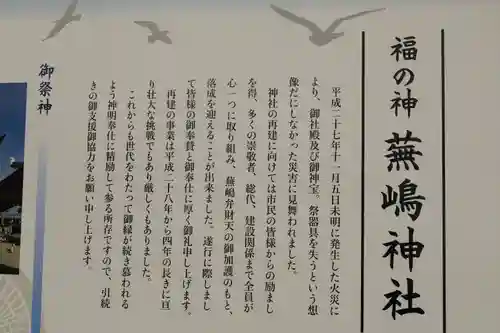 福の神 蕪嶋神社
平成二十七年十一月五日未明に発生した火災に
より、御社殿及び御神宝。祭器具を失うという想
像だにしなかった災害に見舞われました。
神社の再建に向けては市民の皆様からの励まし
を得、多くの崇敬者、総代、建設関係まで全員が
心一つに取り組み、蕪嶋弁財天の御加護のもと、
落成を迎えることが出来ました。遂行に際しまし
て皆様の御奉賛と御奉仕に厚く御礼申し上げます。
再建の事業は平成二十八年から四年の長きに亘
り壮大な挑戦でもあり厳しくもありました。
これからも世代をわたって御縁が続き慕われる
よう神明奉仕に精励して参る所存ですので、引続
きの御支援御協力をお願い申し上げます。
御祭神